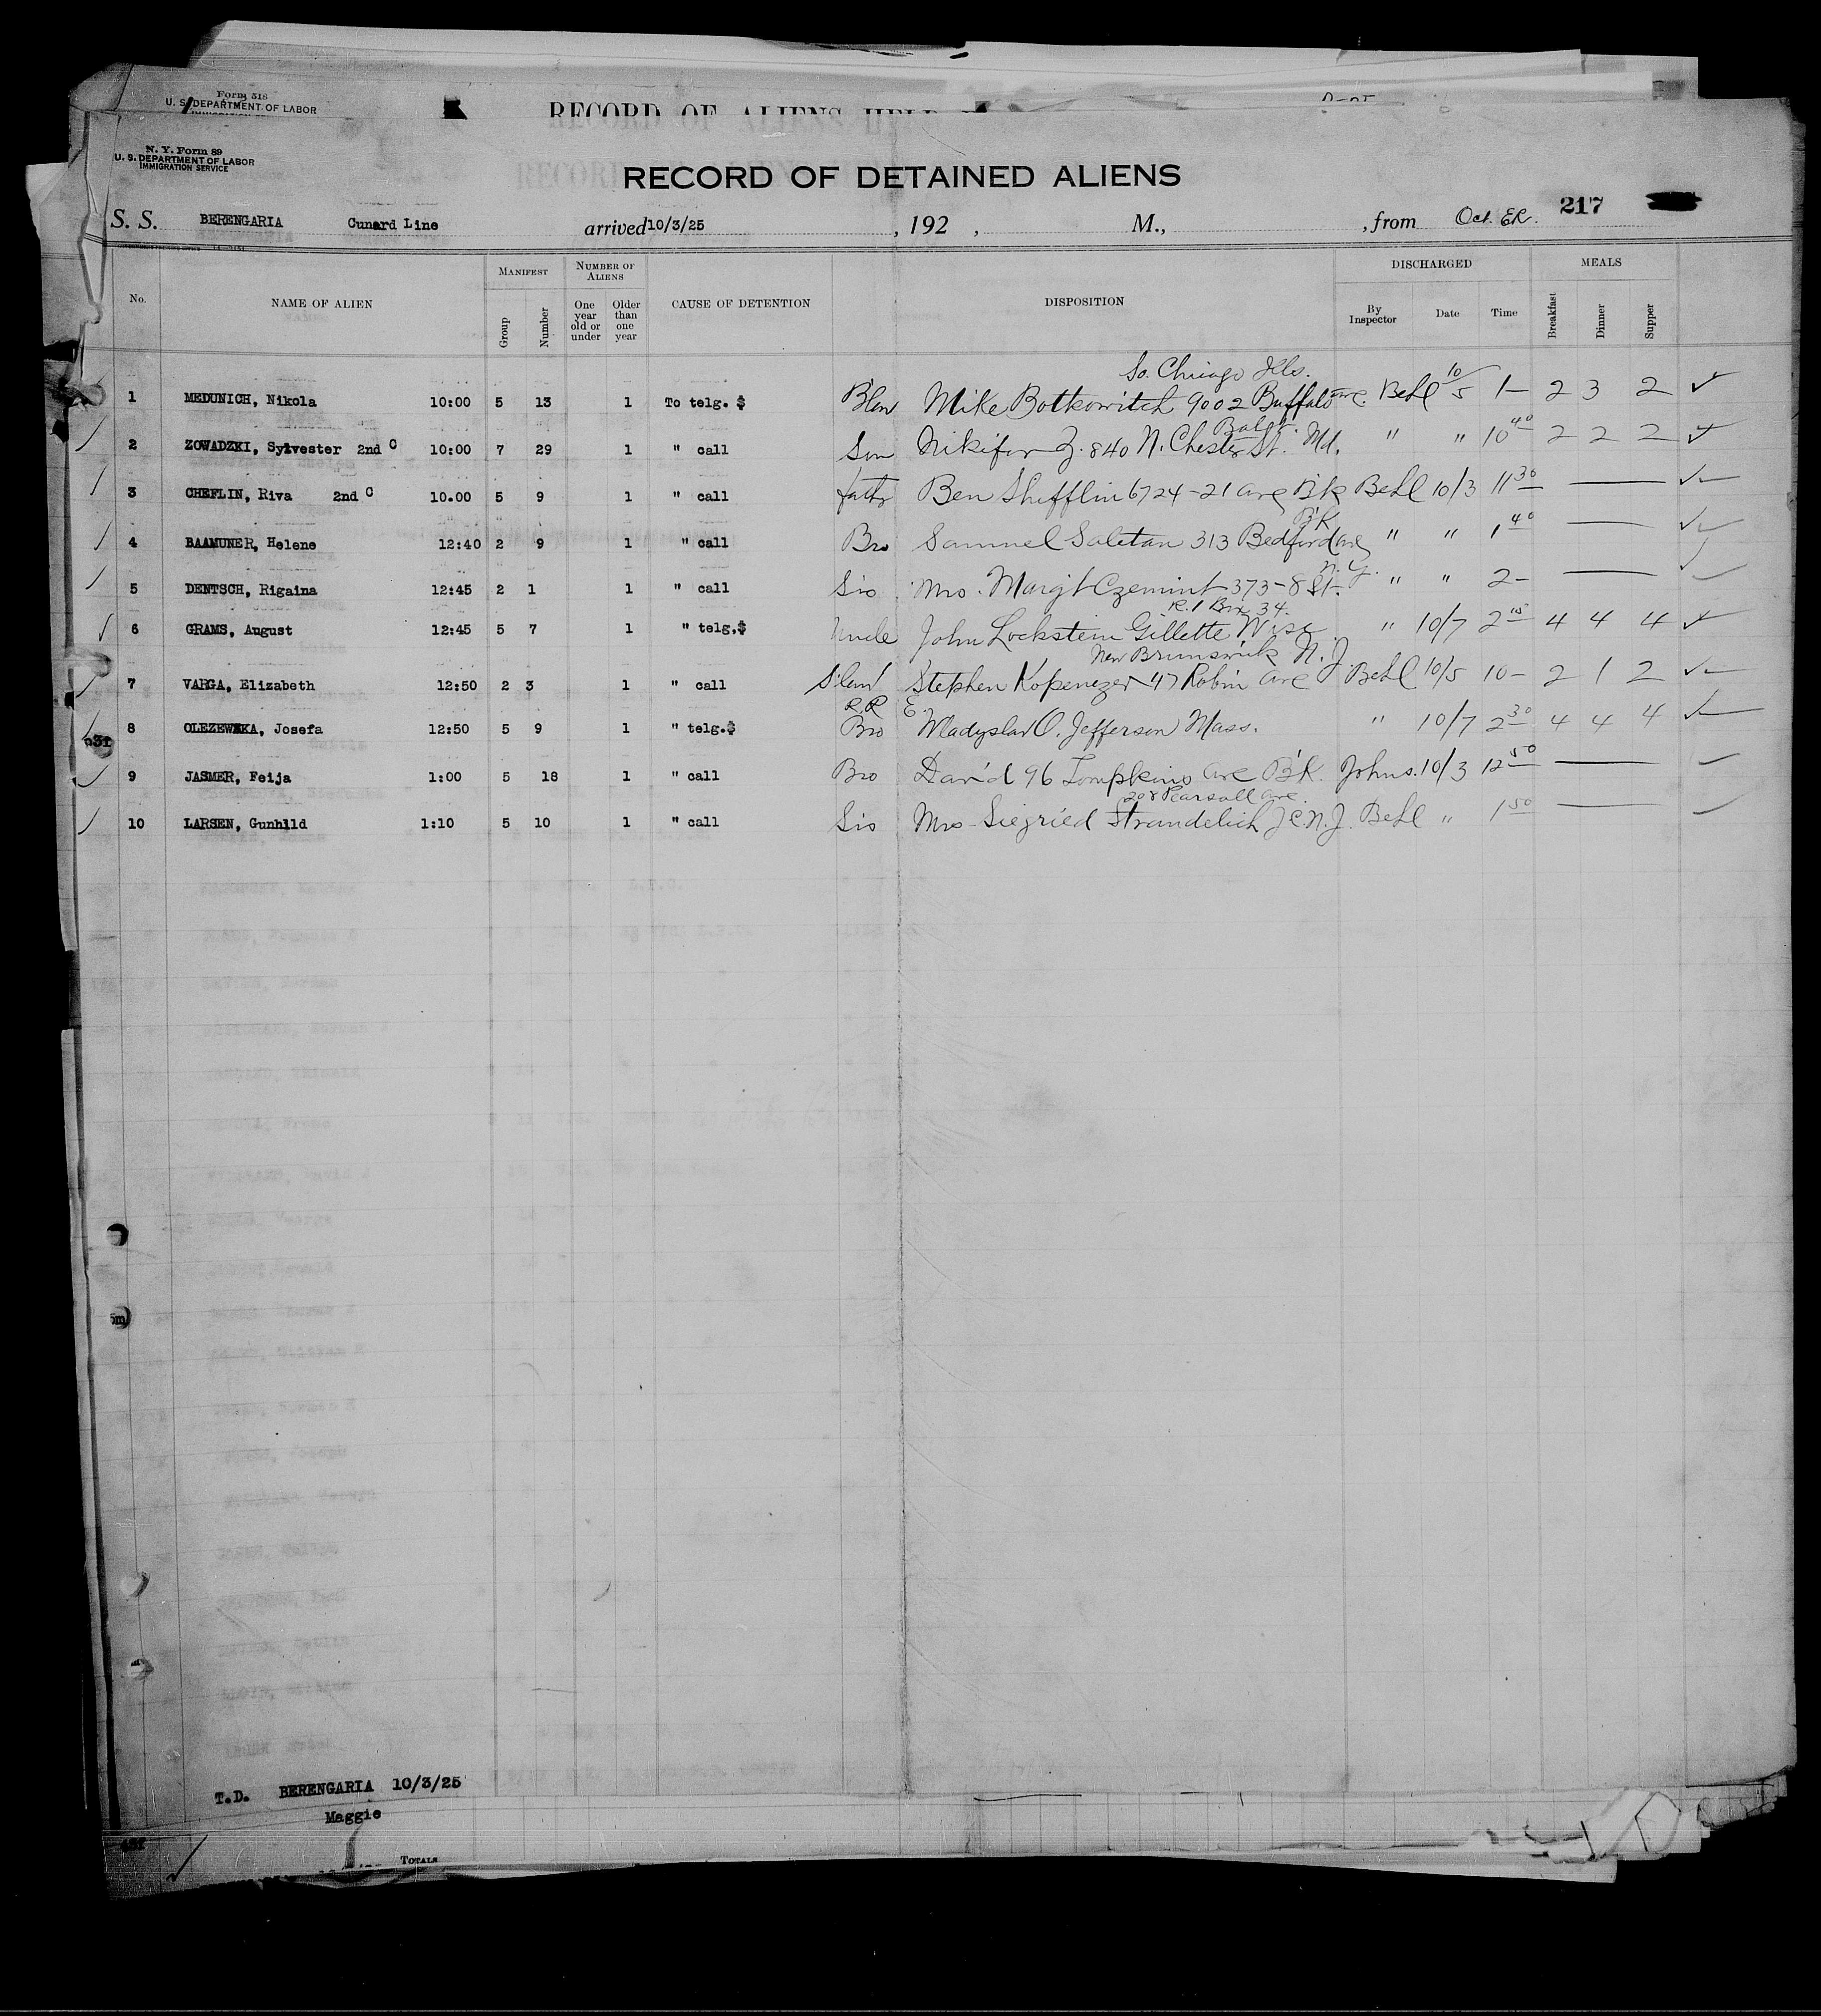 Form 518
U. S. DEPARTMENT OF LABOR
RECORD OF ALIENS HELD
N. Y. Form 89
U. S. DEPARTMENT OF LABOR
IMMIGRATION SERVICE
RECORD OF DETAINED ALIENS
217
S. S. BERENGARIA Cunard Line arrived 10/3/25 , 192 , M., , from Oct. ER.
No. NAME OF ALIEN MANIFEST NUMBER OF ALIENS CAUSE OF DETENTION DISPOSITION DISCHARGED MEALS
Group Number One year old or under Older than one year By Inspector Date Time Breakfast Dinner Supper
So. Chicago Ills.
1 MEDUNICH, Nikola 10:00 5 13 1 To telg. $ B'law Mike Botkowitch 9002 Buffalo ave. Behl 10/5 1— 2 3 2
Balt.
2 ZOWADZKI, Sylvester 2nd C 10:00 7 29 1 " call Son Nikifor Z. 840 N. Chester St. Md. " " 10 40 2 2 2
3 CHEFLIN, Riva 2nd C 10.00 5 9 1 " call fath Ben Shifflin 6724-21 ave B'k Behl 10/3 11 30 —
B'K
4 BAAMUNER, Helene 12:40 2 9 1 " call Bro Samuel Saletan 313 Bedford ave " " 1 40 —
N.Y.
5 DENTSCH, Rigaina 12:45 2 1 1 " call Sis Mrs. Margit Czemint 373-8 St. " " 2— —
R.1 Box 34.
6 GRAMS, August 12:45 5 7 1 " telg.$ Uncle John Lockstein Gillette Wisc. " 10/7 2 15 4 4 4
New Brunswick N.J.
7 VARGA, Elizabeth 12:50 2 3 1 " call S'law Stephen Kopenezer 47 Robin ave Behl 10/5 10— 2 1 2
R.R E.
8 OLEZEWSKA, Josefa 12:50 5 9 1 " telg.$ Bro Wladyslav O. Jefferson Mass. " 10/7 2 30 4 4 4
9 JASMER, Feija 1:00 5 18 1 " call Bro David 96 Tompkins ave B'K. Johns. 10/3 12 50 —
208 Pearsall ave.
10 LARSEN, Gunhild 1:10 5 10 1 " call Sis Mrs Siegried Strandelich J.C.N.J. Behl " 1 50 —
T.D. BERENGARIA 10/3/25
Maggie
TOTALS